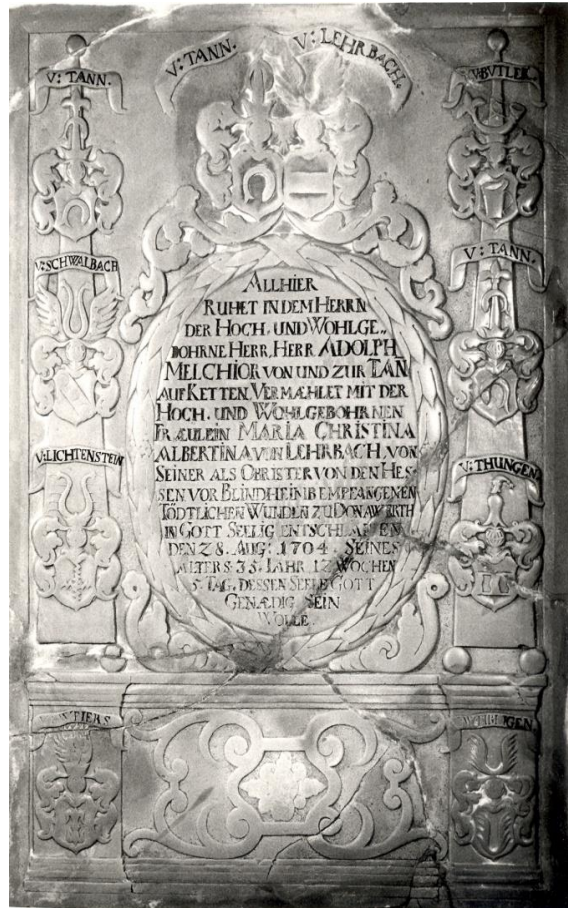 V: TANN.
V: LEHRBACH.
V: TANN.
V: SCHWALBACH
V: LICHTENSTEIN
V: BUTLER.
V: TANN.
V: THUNGEN.
ALLHIER
RUHET IN DEM HERRN
DER HOCH. UND WOHLGE„
BOHRNE HERR, HERR ADOLPH
MELCHIOR VON UND ZUR TAN̄
AUF KETTEN, VERMÆHLET MIT DER
HOCH. UND WOHLGEBOHRNEN
FRÆULEIN MARIA CHRISTINA
ALBERTINA VON LEHRBACH, VON
SEINER ALS OBRISTER VON DEN HES-
SEN VOR BLINDHEIM EMPFANGENEN
TÖDTLICHEN WUNDEN ZU DONAWERTH
IN GOTT SEELIG ENTSCHLAFFEN
DEN 28. AUG: 1704. SEINES
ALTERS 35. IAHR 12 WOCHEN
5. TAG, DESSEN SEELE GOTT
GENÆDIG SEIN
WOLLE.